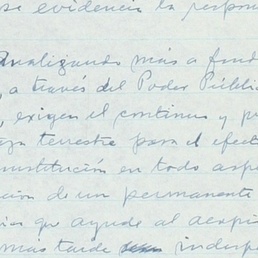 se evidencia la respon
Analizando más a fond
, a través del Poder Públic
, exigen el continuo y p
terrestre para el efect
nstitución en todo aspe
ción de un permanente
que ayude al
más tarde indisp